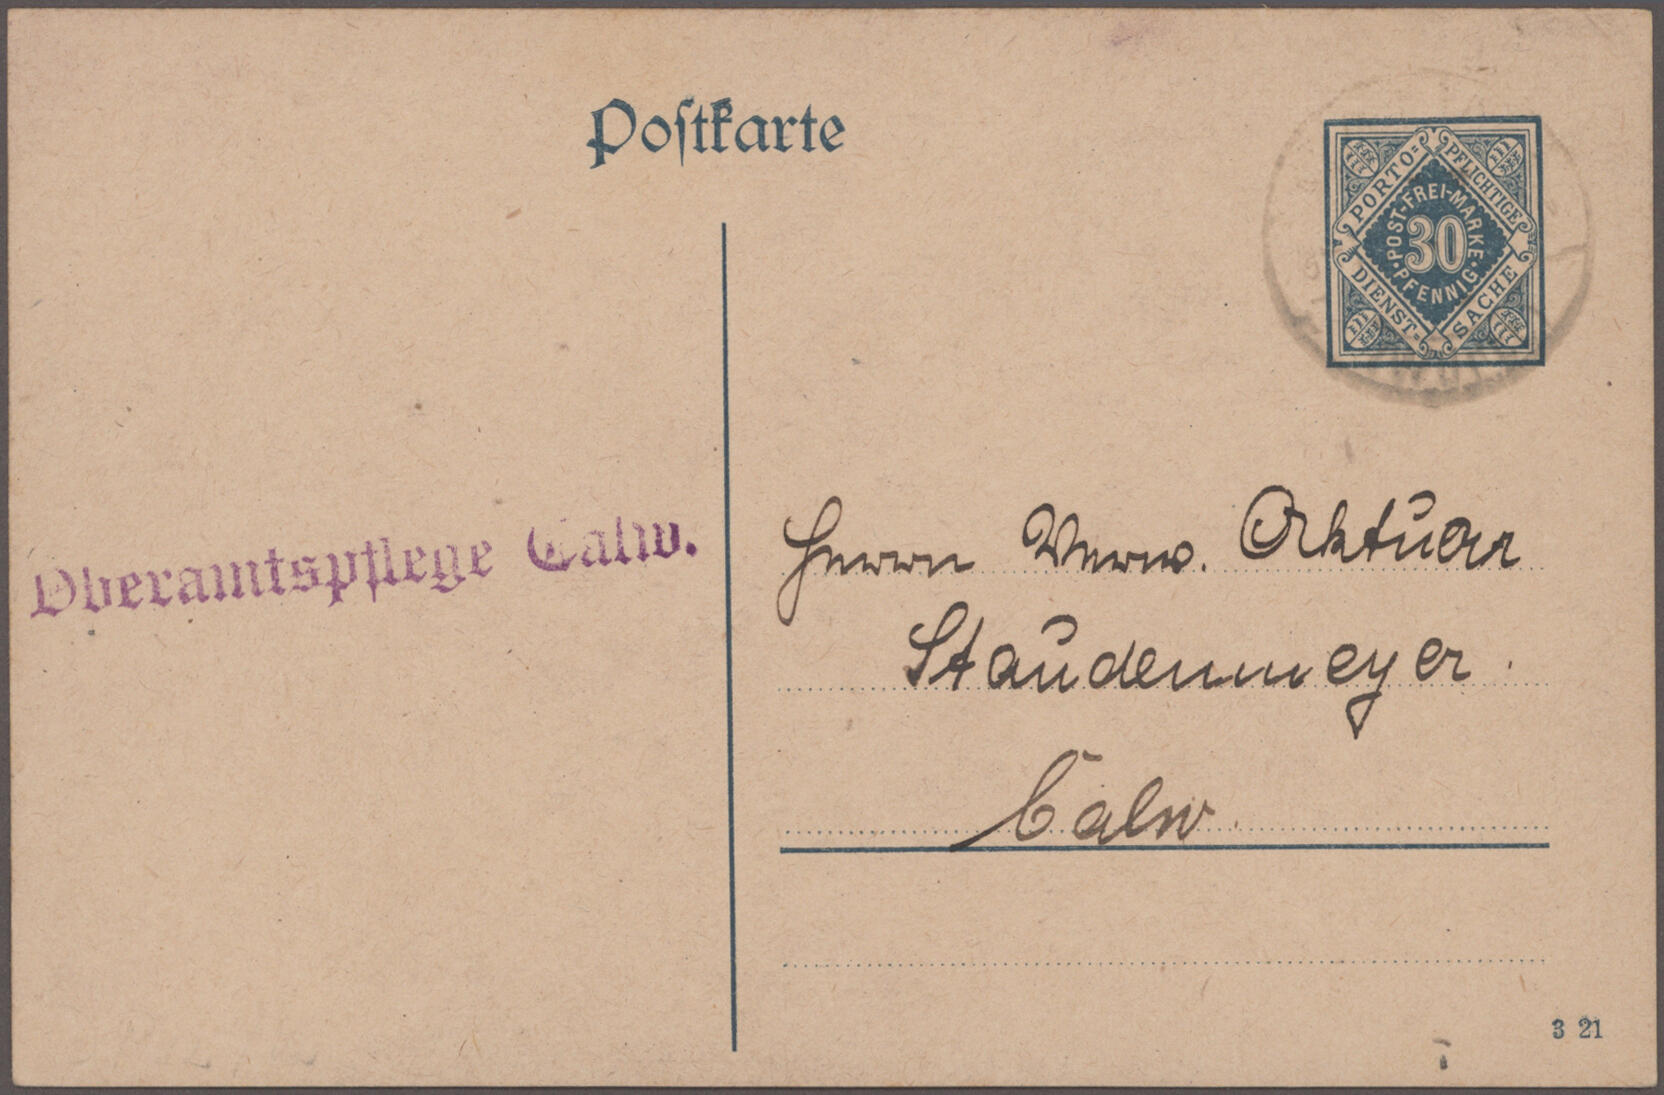 Postkarte
PORTO=
PFLICHTIGE
DIENST=
SACHE
POST-FREI-MARKE
30
PFENNIG
Oberamtspflege Calw.
Herrn Verw. Aktuar
Staudenmeyer.
Calw.
3 21